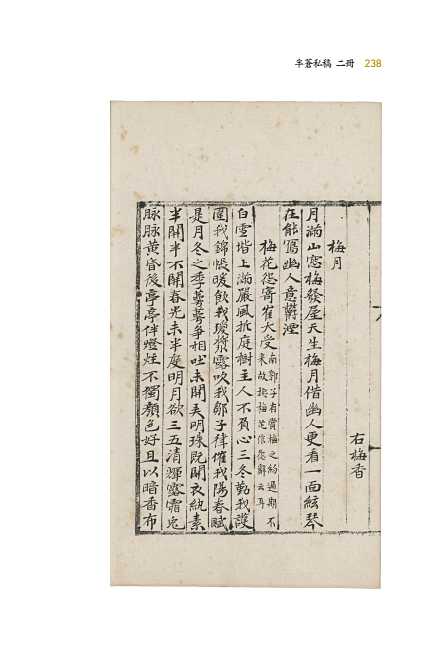 半蒼私稿 二冊 238
右梅香
梅月
月滿山窓梅發屋天生梅月偕幽人更看一面絃琴
在能寫幽人意鬱湮
梅花怨寄崔大受
南郭子有賞梅之約過期不
來故托梅花作怨辭云耳
白雪堦上滿嚴風振庭樹主人不負心三冬勤我護
圍我錦帳暖飲我瓊漿露吹我鄒子律催我陽春賦
是月冬之季萼萼爭相吐未開美明珠既開衣紈素
半開半不開春光未半度明月欲三五清輝露霜兎
脉脉黃昏後亭亭伴燈炷不獨顏色好且以暗香布